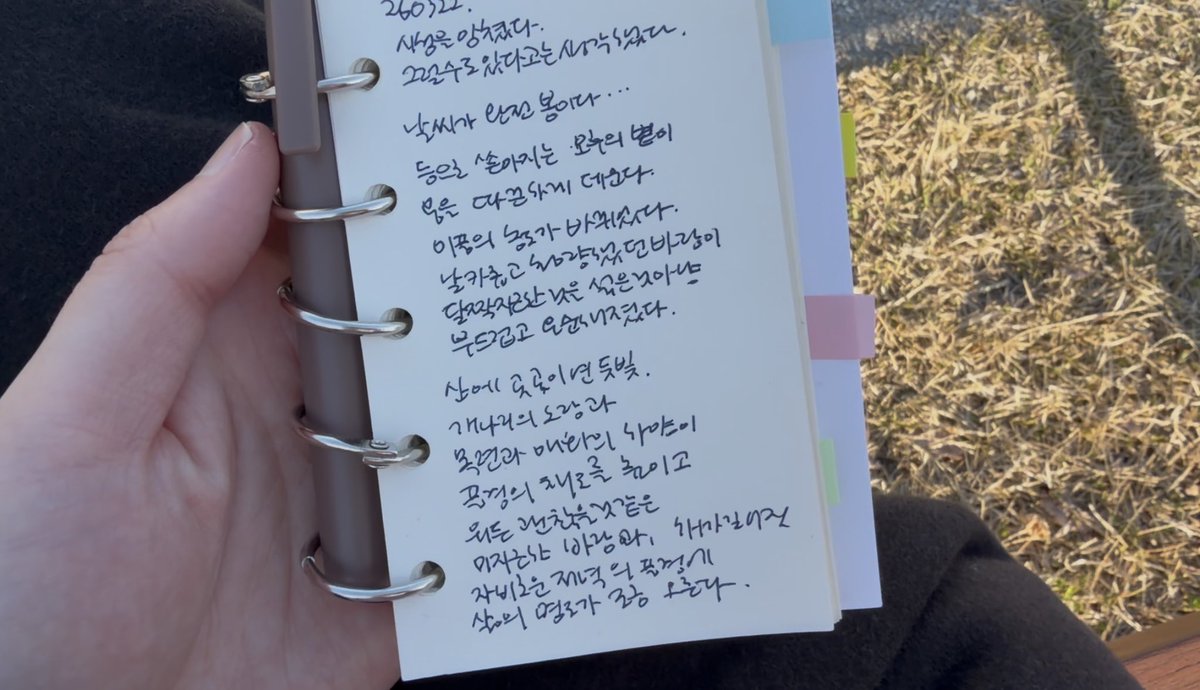 260322.
시험을 망쳤다.
그럴수도있다고는 생각했다.
날씨가 완전 봄이다...
등으로 쏟아지는 오후의 볕이
몸을 따끈하게 데운다.
미풍의 농도가 바뀌었다.
날카롭고 황량했던 바람이
달짝지근한 낮은 섞은것마냥
부드럽고 온순해졌다.
산에 곳곳이 연둣빛.
개나리의 노랑과
목련과 매화의 하양이
풍경의 채도를 높이고
뭐든 괜찮을것같은
미지근한 바람과, 해가길어진
자비로운 저녁의 풍경에
삶의 명도가 조금 오른다.